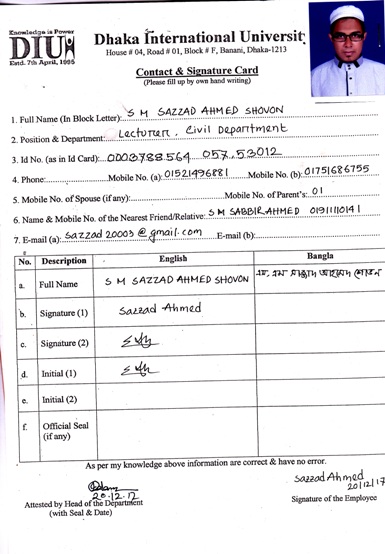 Knowledge is Power
DIU
Estd. 7th April, 1995
Dhaka International University
House # 04, Road # 01, Block # F, Banani, Dhaka-1213
Contact & Signature Card
(Please fill up by own hand writing)
1. Full Name (In Block Letter): S M SAZZAD AHMED SHOVON
2. Position & Department: Lecturer, Civil Department
3. Id No. (as in Id Card): 0003788564 057,53012
4. Phone: Mobile No. (a): 01521496881 Mobile No. (b): 01751686755
5. Mobile No. of Spouse (if any): Mobile No. of Parent's: 01
6. Name & Mobile No. of the Nearest Friend/Relative: S M SABBIR AHMED 01911110141
7. E-mail (a): sazzad20003@gmail.com E-mail (b):
No. Description English Bangla
a. Full Name S M SAZZAD AHMED SHOVON এস, এম সাজ্জাদ আহমেদ শোভন
b. Signature (1) Sazzad Ahmed
c. Signature (2)
d. Initial (1)
e. Initial (2)
f. Official Seal
(if any)
As per my knowledge above information are correct & have no error.
20.12.17
Sazzad Ahmed
20/12/17
Attested by Head of the Department
(with Seal & Date)
Signature of the Employee